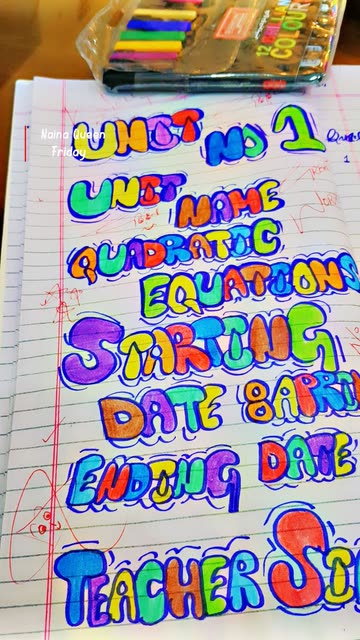 12 BRILLIANT
COLOURS
Naina Queen
Friday
UNIT NO 1
UNIT NAME
QUADRATIC
EQUATIONS
STARTING
DATE 8 APRI
ENDING DATE
TEACHER SI